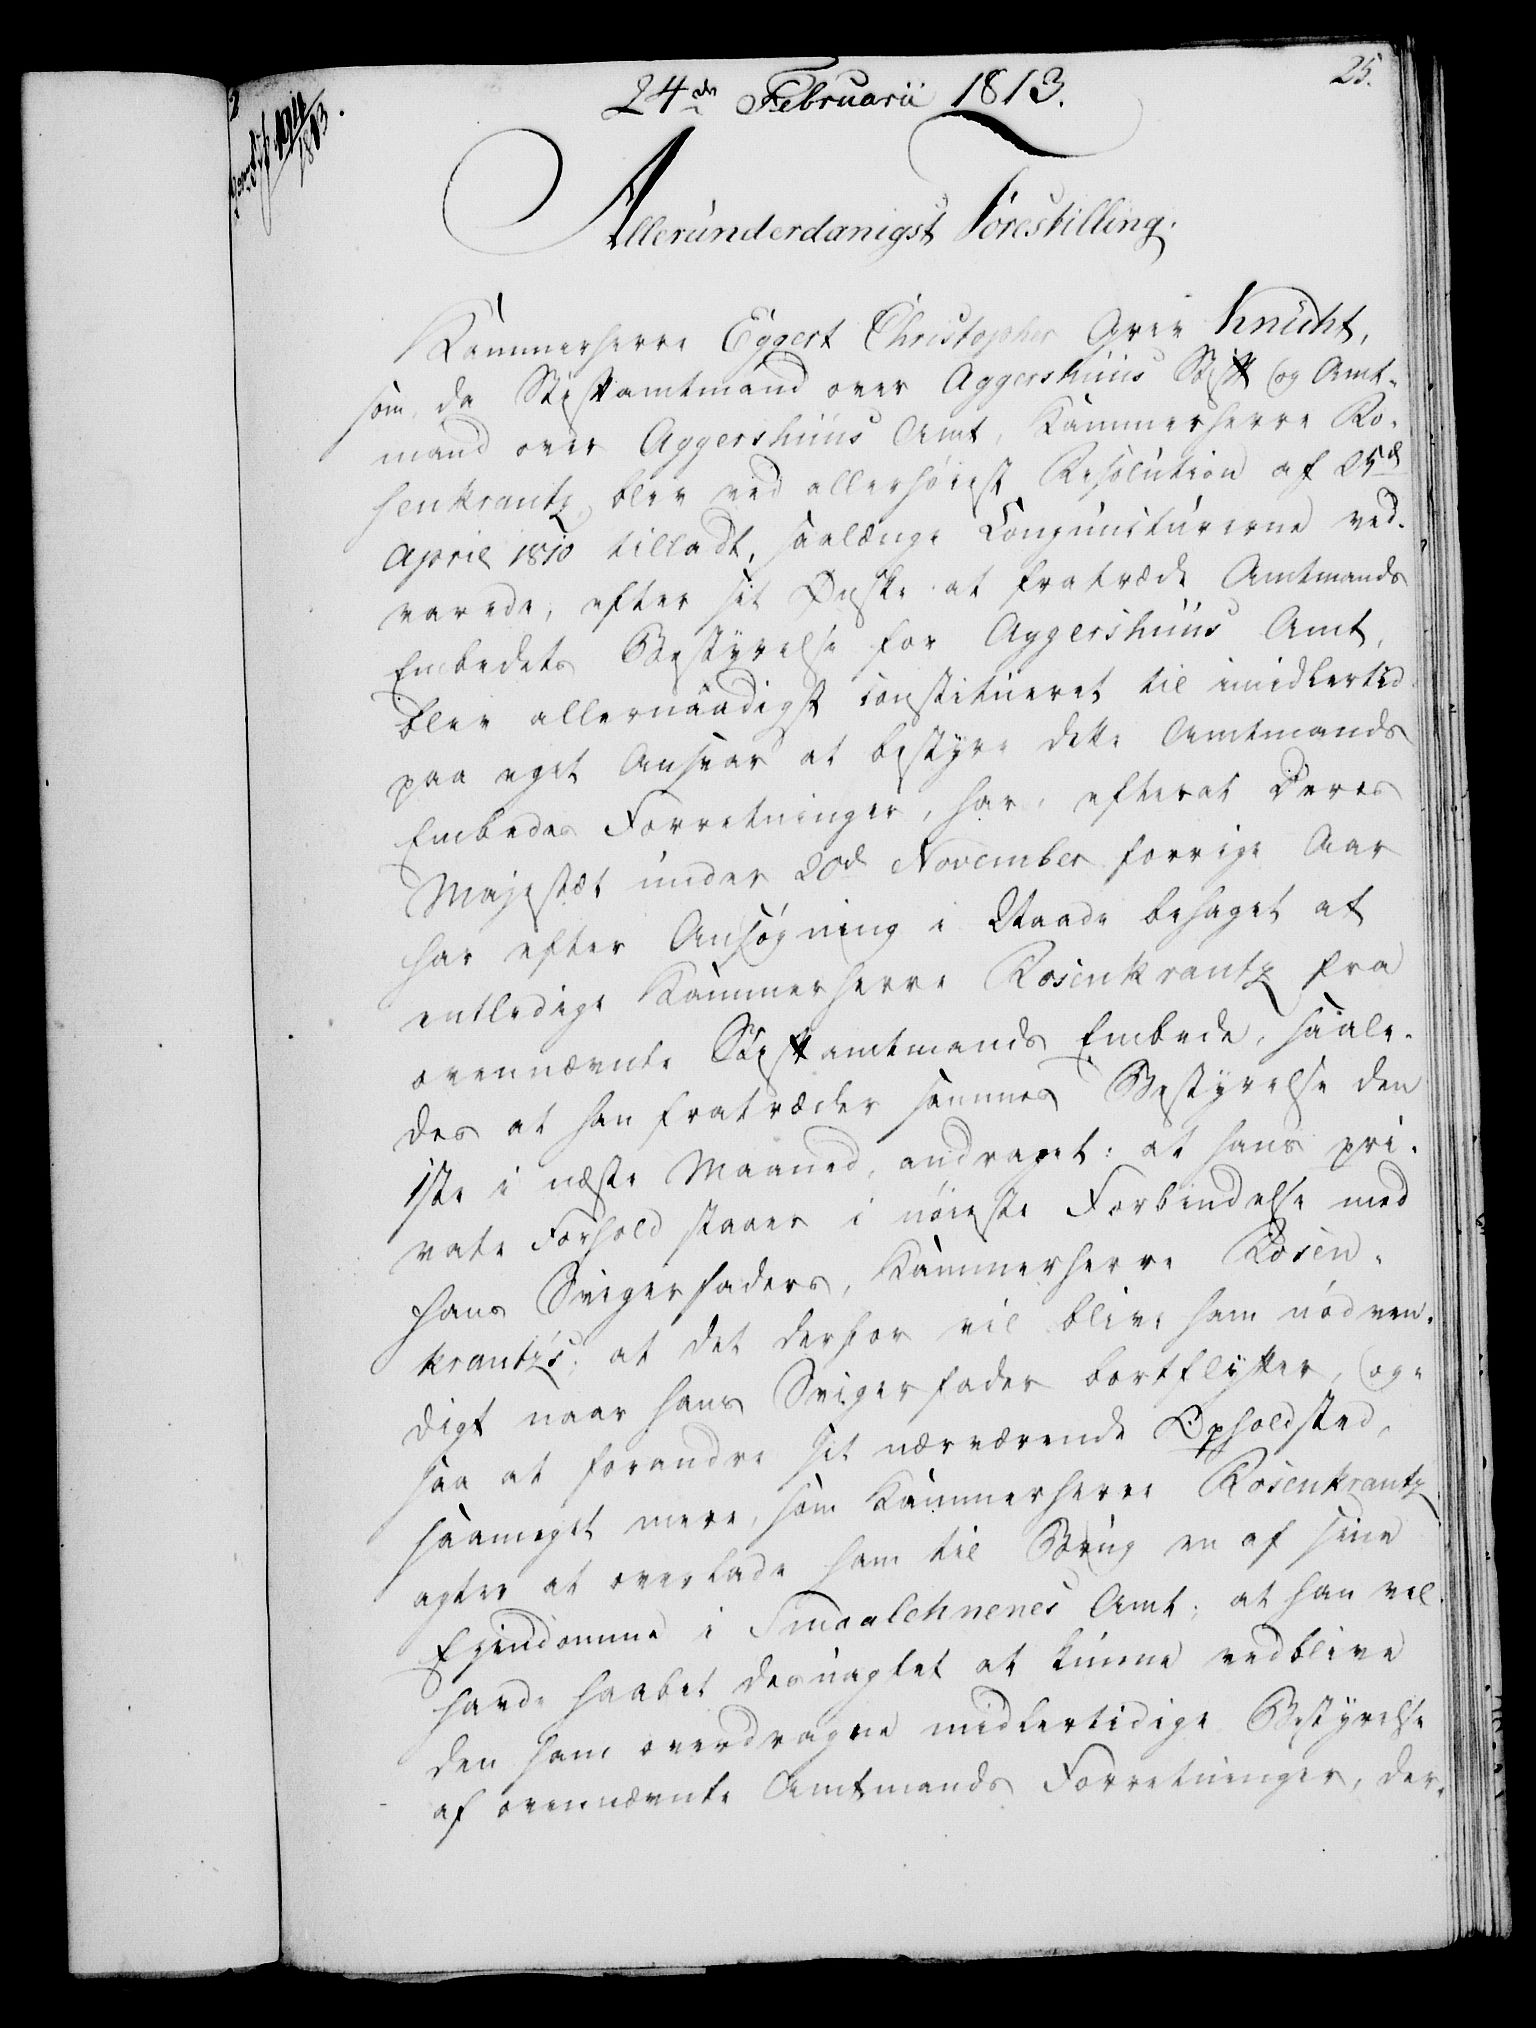 24de Februarii 1813.
25.
1813.
Allerunderdanigst Forestilling.
Kammerherre Eggert Christopher Grev Knuht,
som, da Stiftamtmand over Aggershuus Stift og Amt-
mand over Aggershuus Amt, Kammerherre Ro-
senkrantz, blev ved allerhøiest Resolution af 25de
April 1810 tilladt, saalænge Conjuncturerne ved-
varede, efter sit Ønske at fratræde Amtmands
Embedets Bestyrelse for Aggershuus Amt,
blev allernaadigst constitueret til imidlertid
paa eget Ansvar at bestyre dette Amtmands
Embedes Forretninger, har, efterat Deres
Majestæt under 20de November forrige Aar
har efter Ansøgning i Naade behaget at
entledige Kammerherre Rosenkrantz fra
ovennævnte Stiftamtmands Embede, saale-
des at han fratræder sammes Bestyrelse den
1ste i næste Maaned, andraget: at hans pri-
vate Forhold staaer i nøieste Forbindelse med
hans Svigerfaders, Kammerherre Rosen-
krantz's; at det derfor vil blive ham nødven-
digt naar hans Svigerfader bortflytter, og-
saa at forandre sit nærværende Opholdsted,
saameget mere, som Kammerherre Rosenkrantz
agter at overlade ham til Brug en af sine
Eiendomme i Smaalehnenes Amt; at han vel
havde haabet desuagtet at kunne vedblive
den ham overdragne midlertidige Bestyrelse
af ovennævnte Amtmands Forretninger, der-